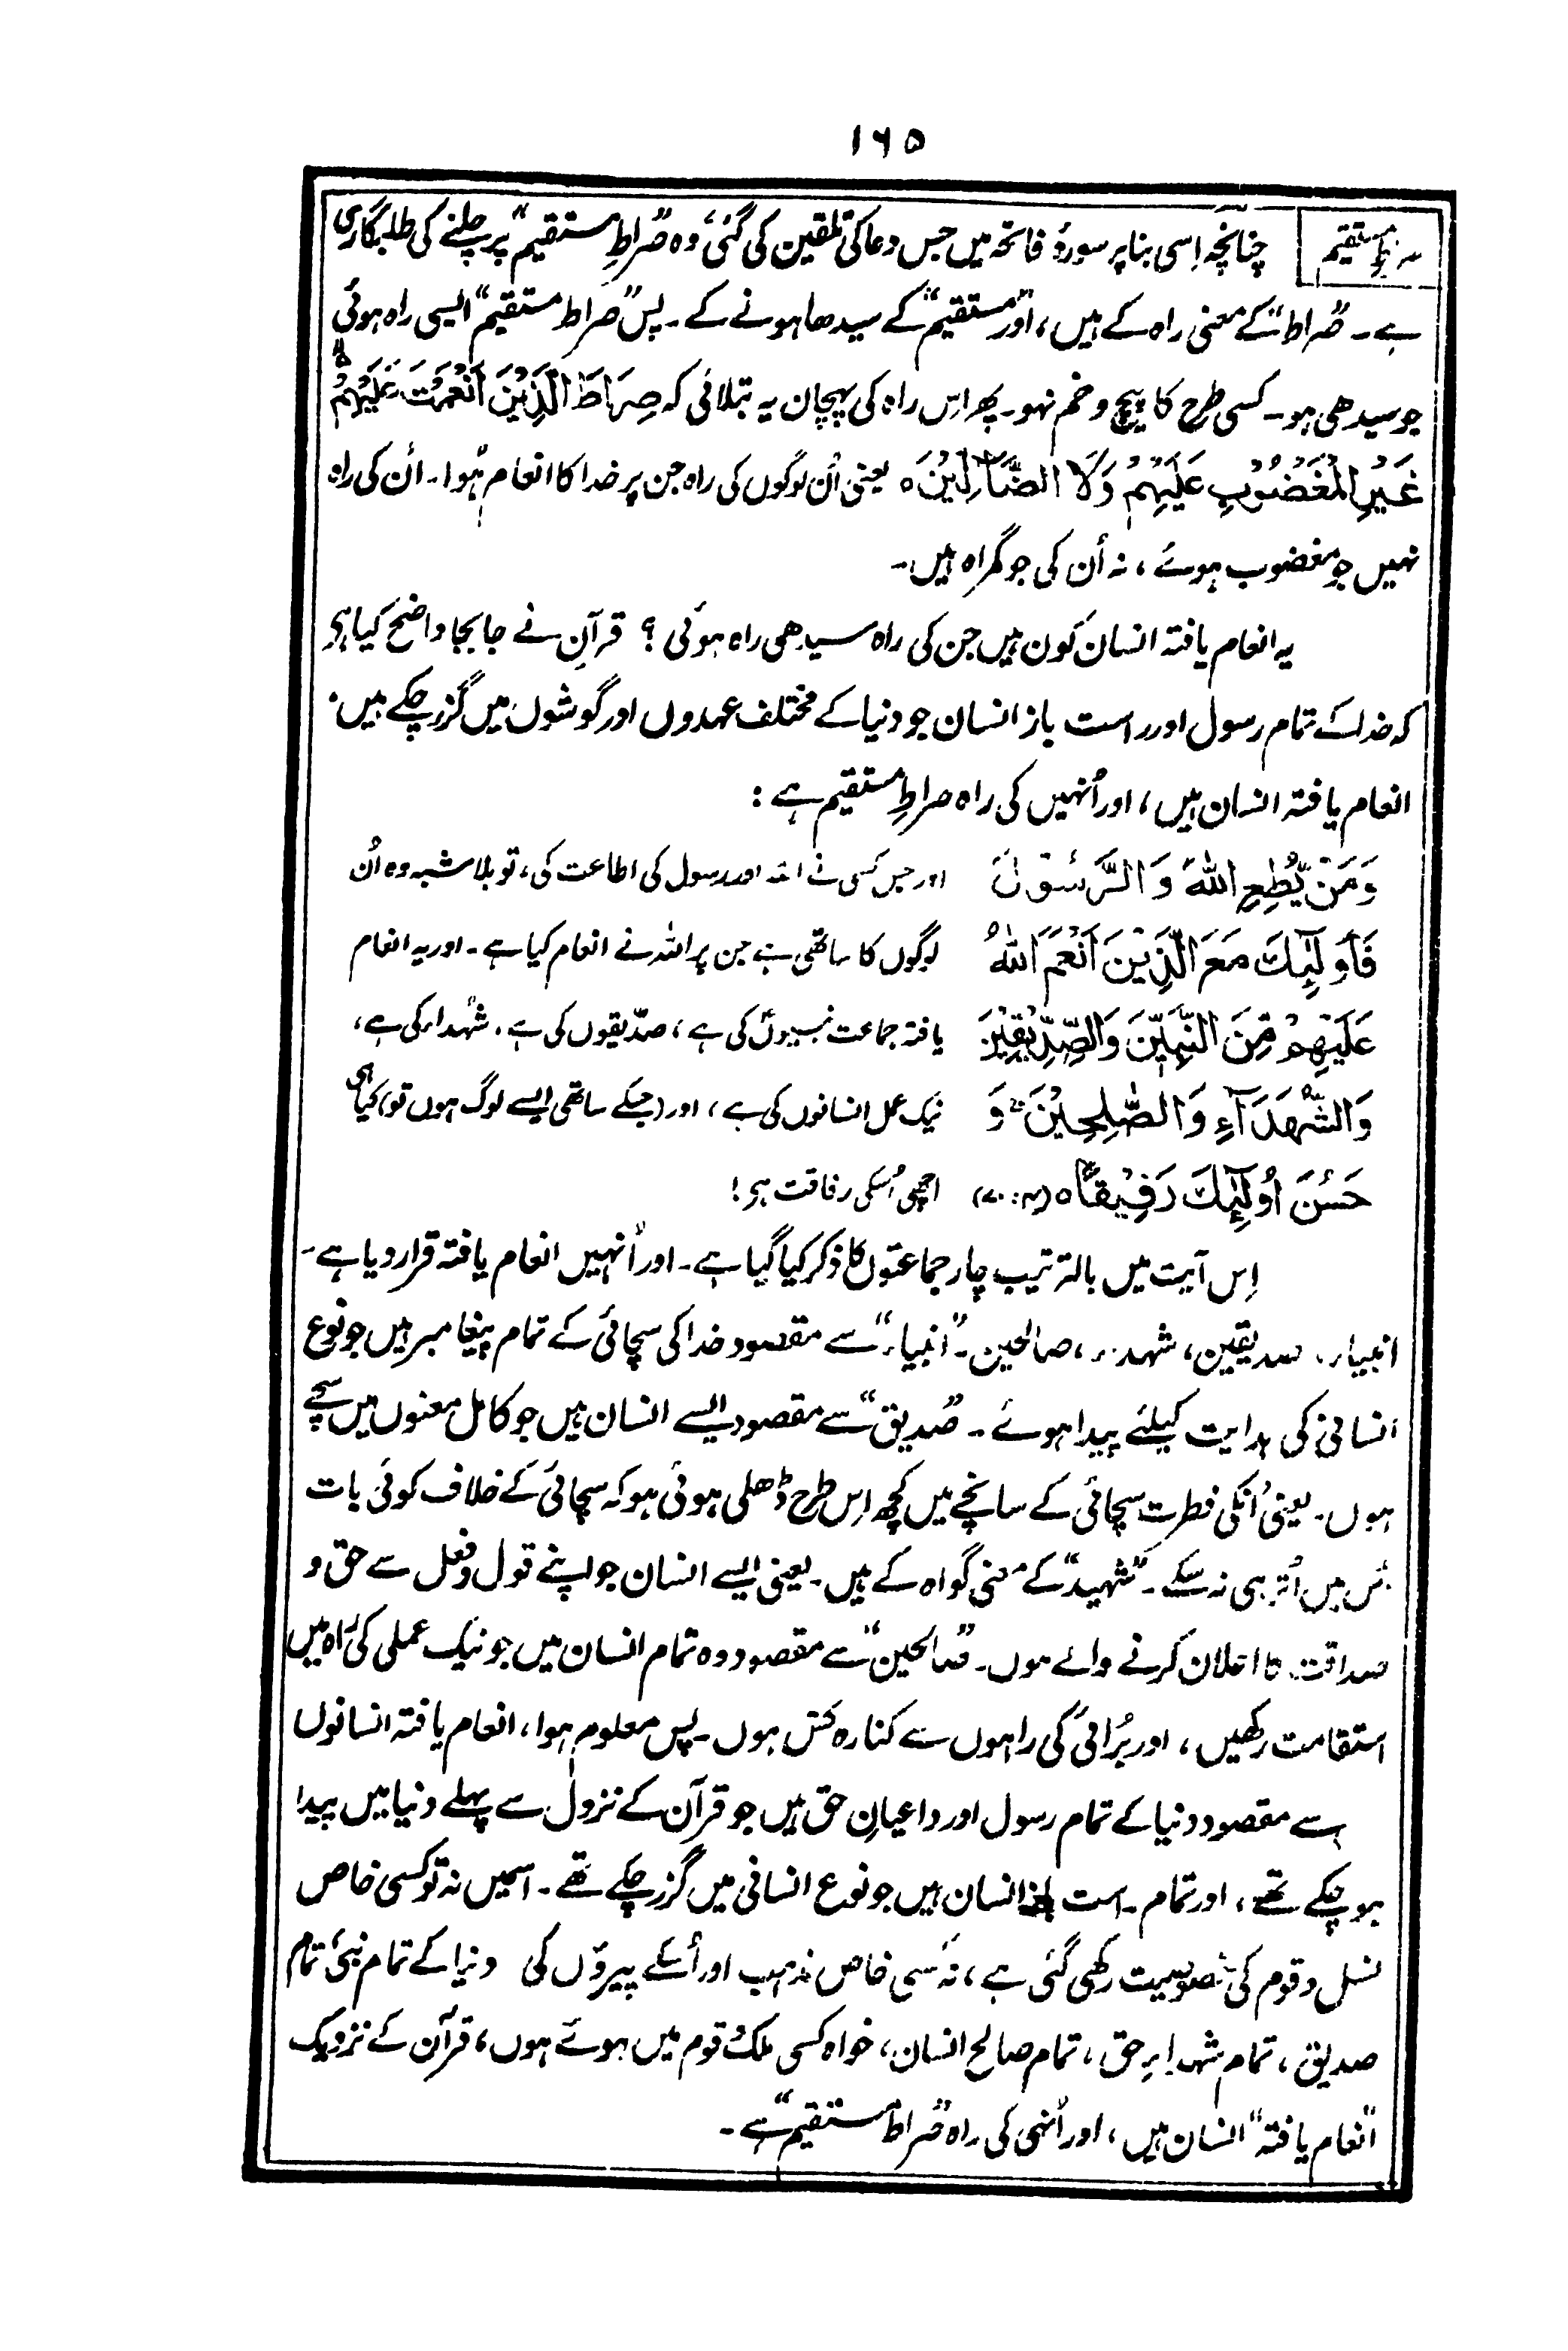 ۱۶۵
صراط مستقیم
چنانچہ اِسی بنا پر سورۂ فاتحہ میں جس دعا کی تلقین کی گئی، وہ "صراطِ مستقیم" پر چلنے کی طلبگاری
ہے۔ "صراط" کے معنی راہ کے ہیں، اور "مستقیم" کے سیدھا ہونے کے۔ پس "صراط مستقیم" ایسی راہ ہوئی
جو سیدھی ہو۔ کسی طرح کا پیچ و خم نہو۔ پھر اس راہ کی پہچان یہ بتلائی کہ صِرَاطَ الَّذِیْنَ اَنْعَمْتَ عَلَیْہِمْ
غَیْرِ الْمَغْضُوْبِ عَلَیْہِمْ وَلَا الضَّآلِّیْنَ ہ یعنی اُن لوگوں کی راہ جن پر خدا کا انعام ہُوا۔ اُن کی راہ
نہیں جو مغضوب ہوئے، نہ اُن کی جو گمراہ ہیں۔
یہ انعام یافتہ انسان کون ہیں جن کی راہ سیدھی راہ ہوئی؟ قرآن نے جا بجا واضح کیا ہی
کہ خدا کے تمام رسول اور راست باز انسان جو دنیا کے مختلف عہدوں اور گوشوں میں گزر چکے ہیں.
انعام یافتہ انسان ہیں، اور اُنہیں کی راہ صراطِ مستقیم ہے:
وَمَنْ یُّطِعِ اللّٰہَ وَالرَّسُوْلَ اور جس کسی نے اللہ اور رسول کی اطاعت کی، تو بلا شبہ وہ اُن
فَاُولٰٓئِکَ مَعَ الَّذِیْنَ اَنْعَمَ اللّٰہُ لوگوں کا ساتھی ہے جن پر اللہ نے انعام کیا ہے۔ اور یہ انعام
عَلَیْہِمْ مِّنَ النَّبِیّٖنَ وَالصِّدِّیْقِیْنَ یافتہ جماعت نبیوں کی ہے، صدّیقوں کی ہے، شہداء کی ہے،
وَالشُّھَدَآءِ وَالصّٰلِحِیْنَ ۚ وَ نیک عمل انسانوں کی ہے، اور (جسکے ساتھی ایسے لوگ ہوں تو) کیا ہی
حَسُنَ اُولٰٓئِکَ رَفِیْقًا ہ (۴: ۷۰) اچھی اُسکی رفاقت ہی!
اِس آیت میں بالترتیب چار جماعتوں کا ذکر کیا گیا ہے۔ اور اُنہیں انعام یافتہ قرار دیا ہے۔
انبیاء، صدیقین، شہداء، صالحین۔ "انبیاء" سے مقصود خدا کی سچائی کے تمام پیغامبر ہیں جو نوع
انسانی کی ہدایت کیلئے پیدا ہوئے۔ "صدیق" سے مقصود ایسے انسان ہیں جو کامل معنوں میں سچے
ہوں۔ یعنی اُنکی فطرت سچائی کے سانچے میں کچھ اِس طرح ڈھلی ہوئی ہو کہ سچائی کے خلاف کوئی بات
اُس میں اُتر ہی نہ سکے۔ "شہید" کے معنی گواہ کے ہیں۔ یعنی ایسے انسان جو اپنے قول و فعل سے حق و
صداقت کا اعلان کرنے والے ہوں۔ "صالحین" سے مقصود وہ تمام انسان ہیں جو نیک عملی کی راہ میں
استقامت رکھیں، اور بُرائی کی راہوں سے کنارہ کش ہوں۔ پس معلوم ہوا، انعام یافتہ انسانوں
سے مقصود دنیا کے تمام رسول اور داعیانِ حق ہیں جو قرآن کے نزول سے پہلے دنیا میں پیدا
ہو چکے تھے، اور تمام راست باز انسان ہیں جو نوع انسانی میں گزر چکے تھے۔ اسمیں نہ تو کسی خاص
نسل و قوم کی خصوصیت رکھی گئی ہے، نہ کسی خاص مذہب اور اُسکے پیرؤں کی دنیا کے تمام نبی، تمام
صدیق، تمام شہداءِ حق، تمام صالح انسان، خواہ کسی ملک و قوم میں ہوئے ہوں، قرآن کے نزدیک
"انعام یافتہ" انسان ہیں، اور اُنہی کی راہ "صراط مستقیم" ہے۔